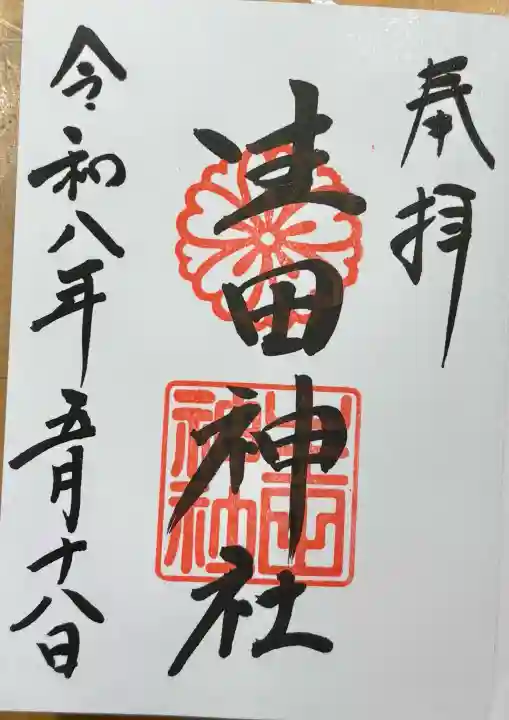 奉拝
生田神社
令和八年五月十八日
生田
神社